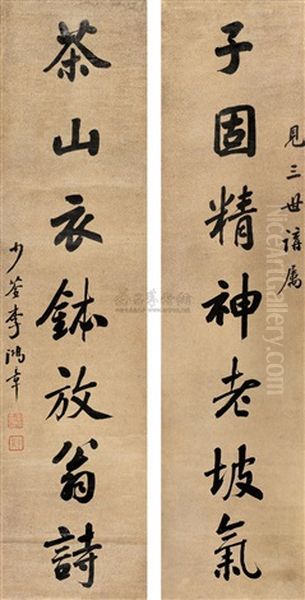 見三世講屬
子固精神老坡氣
茶山衣鉢放翁詩
少荃李鴻章